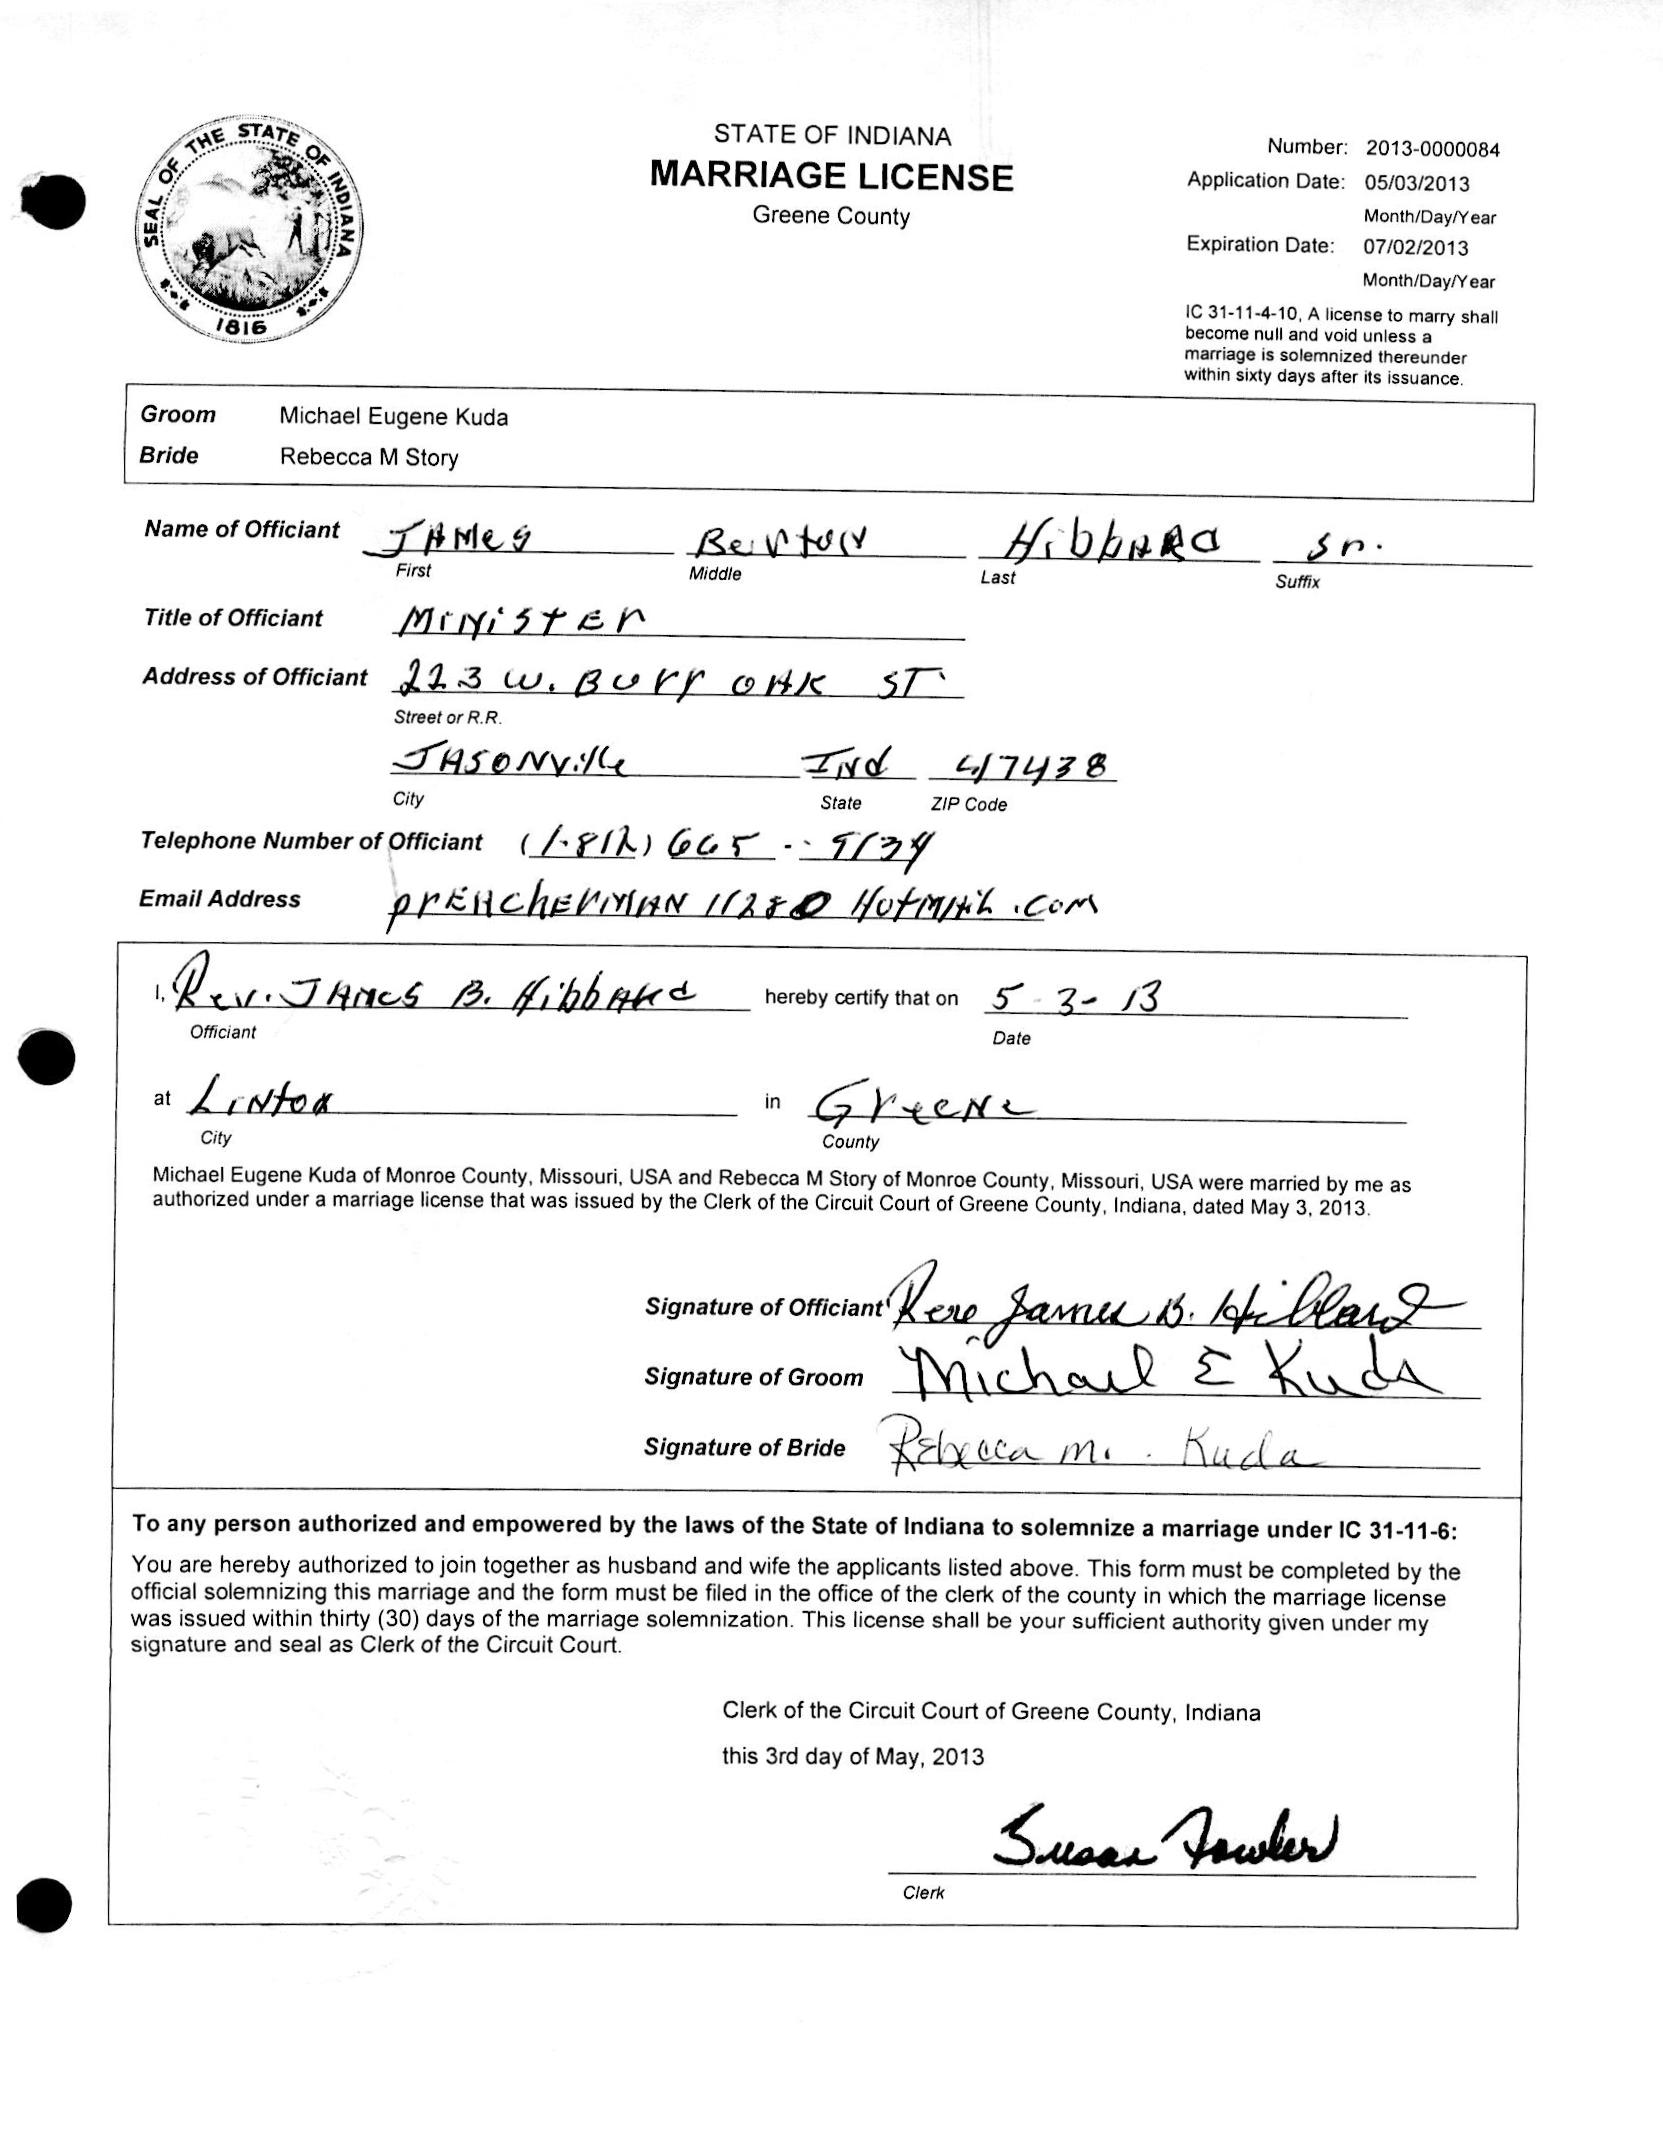 SEAL OF THE STATE OF INDIANA
1816
STATE OF INDIANA
MARRIAGE LICENSE
Greene County
Number: 2013-0000084
Application Date: 05/03/2013
Month/Day/Year
Expiration Date: 07/02/2013
Month/Day/Year
IC 31-11-4-10, A license to marry shall
become null and void unless a
marriage is solemnized thereunder
within sixty days after its issuance.
Groom Michael Eugene Kuda
Bride Rebecca M Story
Name of Officiant JAMES Berton HibbARd Sr.
First Middle Last Suffix
Title of Officiant MiNiSTEr
Address of Officiant 223 W. Burr OAK ST.
Street or R.R.
JASONVille INd 47438
City State ZIP Code
Telephone Number of Officiant (1-812) 665-9134
Email Address prEAchErMAN 11280 HotMAil.com
I, Rev. JAMES B. HibbARd hereby certify that on 5-3-13
Officiant Date
at LiNtoN in GreeNe
City County
Michael Eugene Kuda of Monroe County, Missouri, USA and Rebecca M Story of Monroe County, Missouri, USA were married by me as
authorized under a marriage license that was issued by the Clerk of the Circuit Court of Greene County, Indiana, dated May 3, 2013.
Signature of Officiant Rev James B. Hibbard
Signature of Groom Michael E Kuda
Signature of Bride Rebecca M. Kuda
To any person authorized and empowered by the laws of the State of Indiana to solemnize a marriage under IC 31-11-6:
You are hereby authorized to join together as husband and wife the applicants listed above. This form must be completed by the
official solemnizing this marriage and the form must be filed in the office of the clerk of the county in which the marriage license
was issued within thirty (30) days of the marriage solemnization. This license shall be your sufficient authority given under my
signature and seal as Clerk of the Circuit Court.
Clerk of the Circuit Court of Greene County, Indiana
this 3rd day of May, 2013
Susan Fowler
Clerk